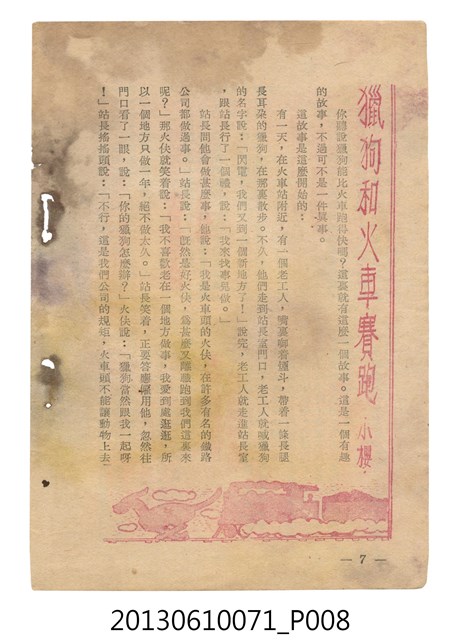 獵狗和火車賽跑 小櫻.
你聽說獵狗能比火車跑得快嗎?這裏就有這麼一個故事。這是一個有趣
的故事,不過可不是一件真事。
這故事是這麼開始的:
有一天,在火車站附近,有一個老工人,嘴裏啣着煙斗,帶着一條長腿
長耳朵的獵狗,在那裏散步。不久,他們走到站長室門口,老工人就喊獵狗
的名字說:「閃電,我們又到一個新地方了!」說完,老工人就走進站長室
,跟站長行了一個禮,說:「我來找事兒做。」
站長問他會做甚麼事,他說:「我是火車頭的火伕,在許多有名的鐵路
公司都做過事。」站長說:「既然是好火伕,為甚麼又離職跑到我們這裏來
呢?」那火伕就笑着說:「我不喜歡老在一個地方做事,我愛到處逛逛,所
以一個地方只做一年,絕不做太久。」站長笑着,正要答應雇用他,忽然往
門口看了一眼,說:「你的獵狗怎麼辦?」火伕說:「獵狗當然跟我一起呀
!」站長搖搖頭說:「不行,這是我們公司的規矩,火車頭不能讓動物上去
— 7 —
20130610071_P008